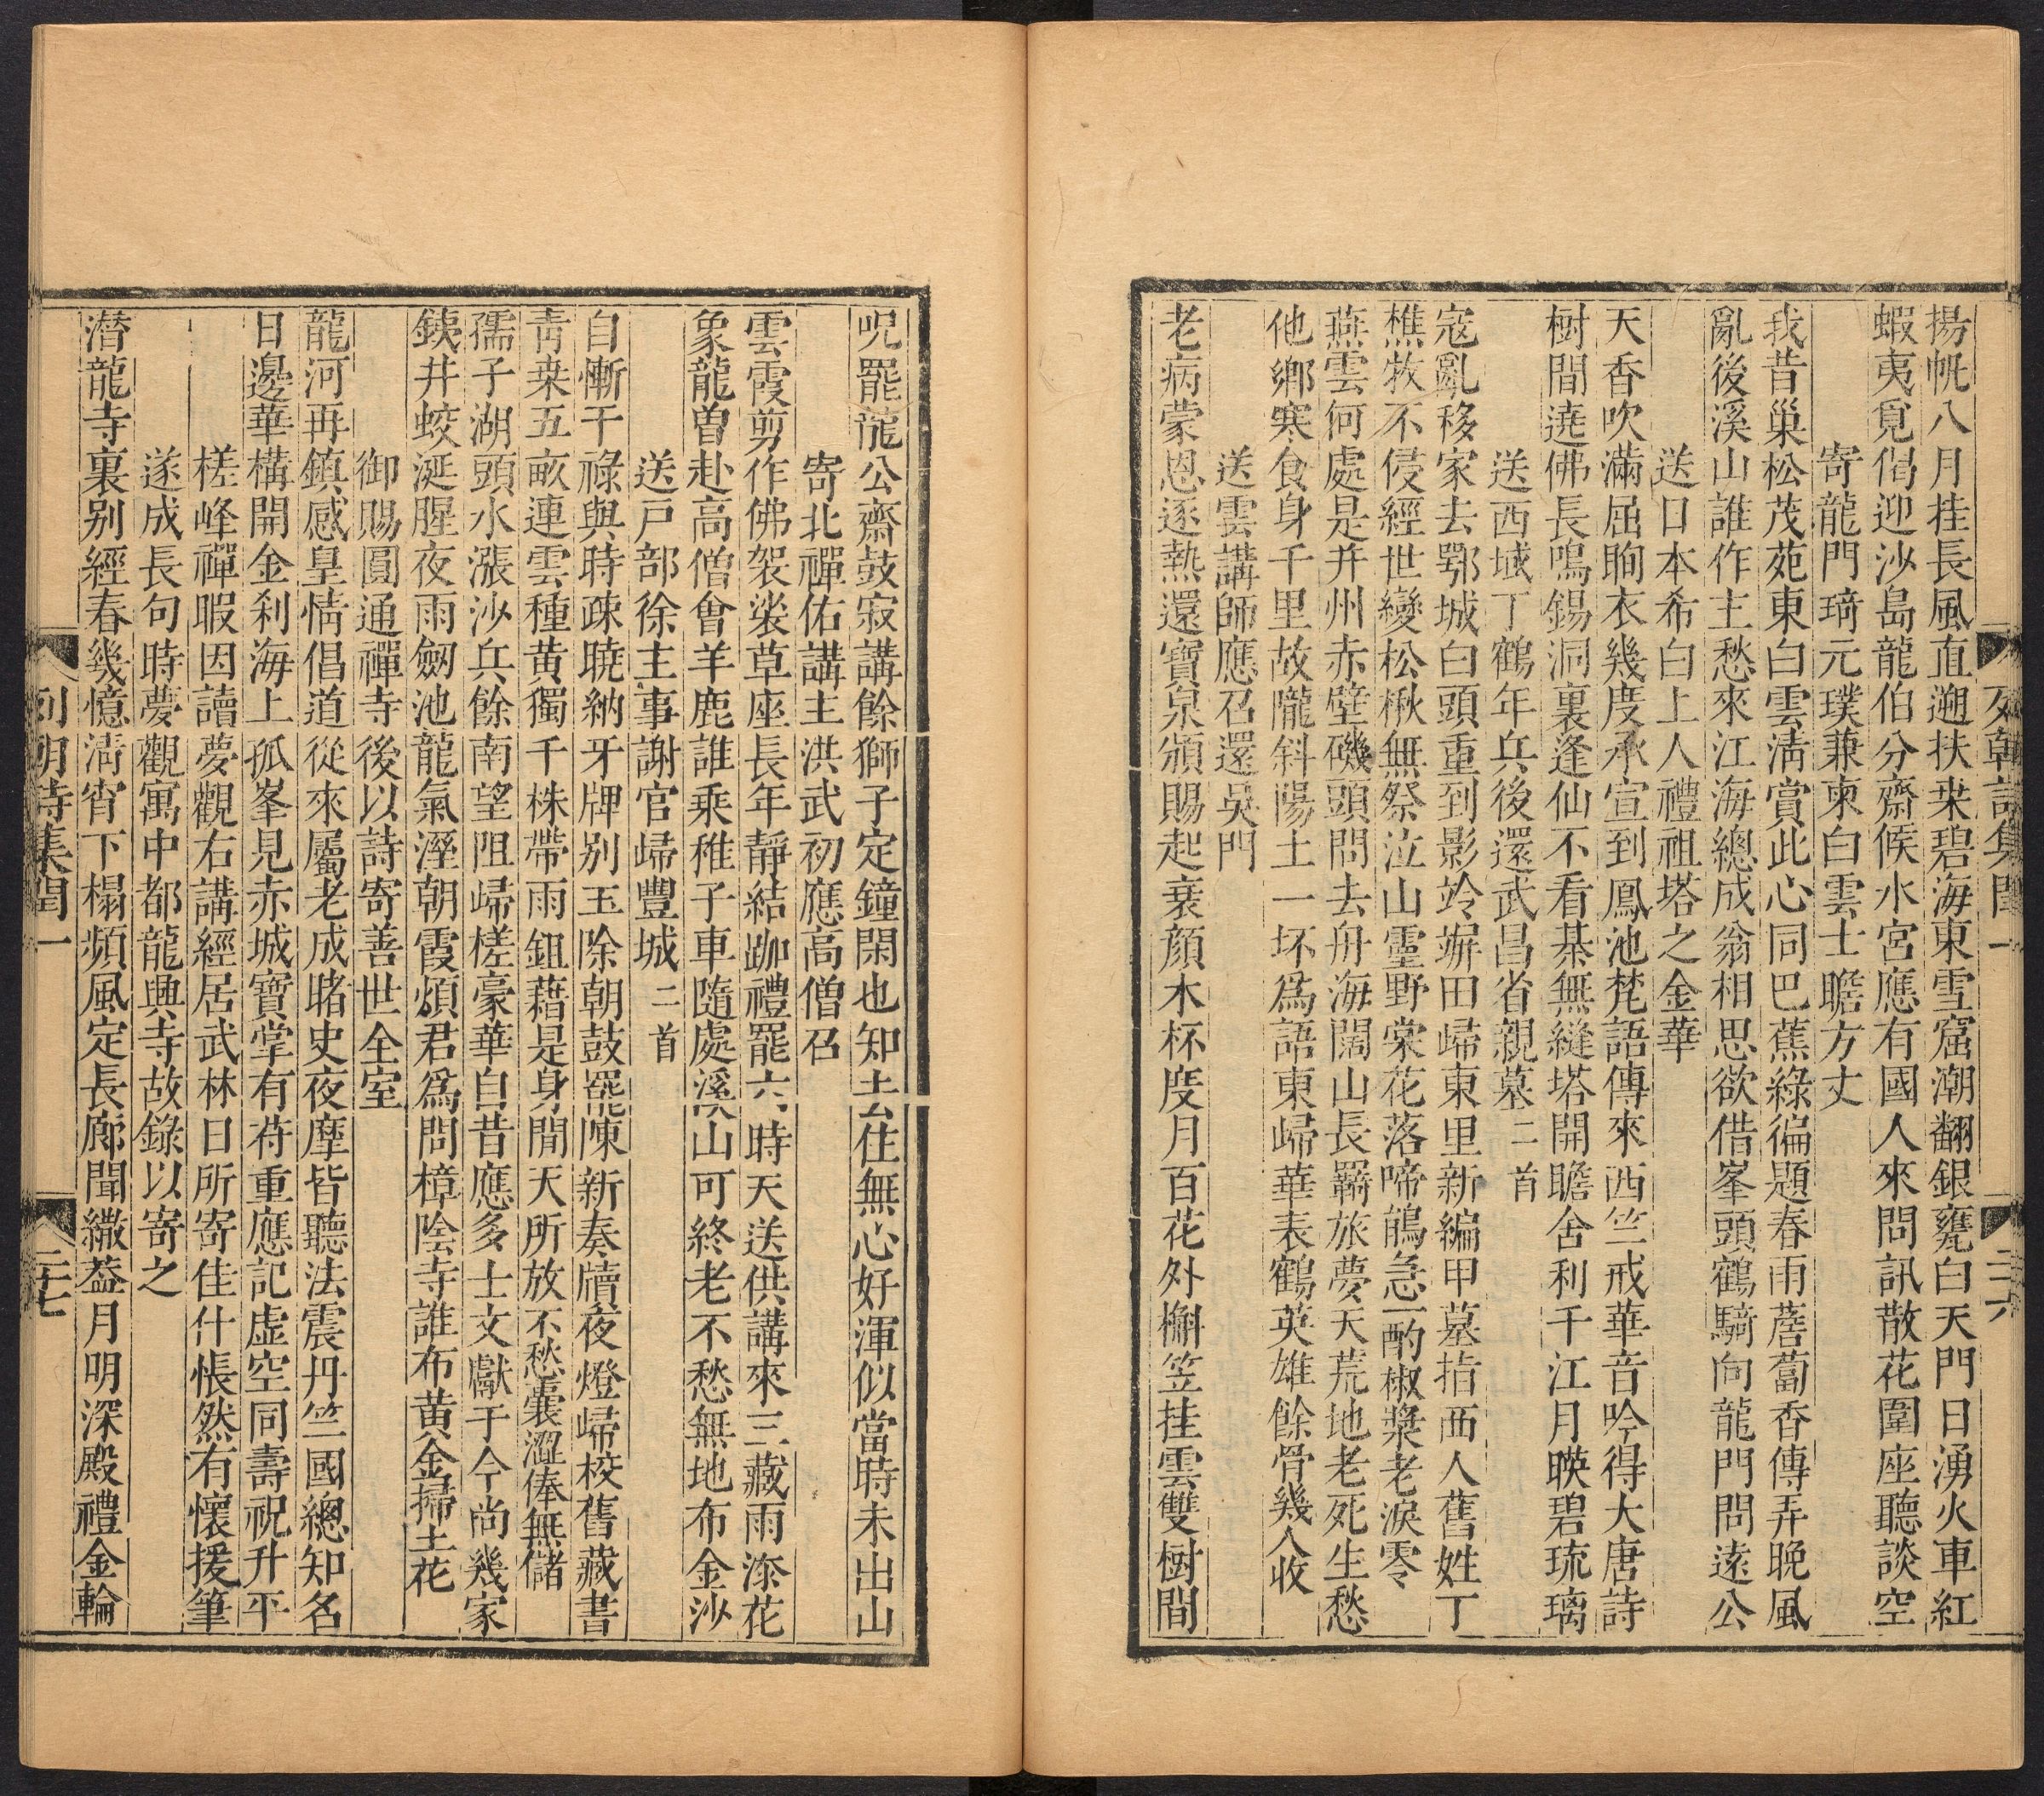 揚帆八月挂長風直遡扶桒碧海東雪窟潮翻銀甕白天門日湧火車紅
蝦夷覓偈迎沙島龍伯分齋候水宮應有國人來問訊散花圍座聽談空
寄龍門琦元璞兼柬白雲士瞻方丈
我昔巢松茂苑東白雲淸賞此心同巴蕉綠徧題春雨薝蔔香傳弄晚風
亂後溪山誰作主愁來江海總成翁相思欲借峯頭鶴騎向龍門問遠公
送日本希白上人禮祖塔之金華
天香吹滿屈眴衣幾度承宣到鳳池梵語傳來西竺戒華音吟得大唐詩
樹間遶佛長鳴錫洞裏逢仙不看棊無縫塔開瞻舍利千江月暎碧琉璃
送西域丁鶴年兵後還武昌省親墓二首
寇亂移家去鄂城白頭重到影竛竮田歸東里新編甲墓指西人舊姓丁
樵牧不侵經世變松楸無祭泣山靈野棠花落啼鵑急一酌椒漿老淚零
燕雲何處是并州赤壁磯頭問去舟海闊山長羇旅夢天荒地老死生愁
他鄉寒食身千里故隴斜陽土一坏爲語東歸華表鶴英雄餘骨幾人收
送雲講師應召還吳門
老病蒙恩逐熱還寶泉頒賜起衰顔木杯度月百花外槲笠挂雲雙樹間
列朝詩集閏一
二十六
呪罷龍公齋鼓寂講餘獅子定鐘閑也知去住無心好渾似當時未出山
寄北禪佑講主洪武初應高僧召
雲霞剪作佛袈裟草座長年靜結跏禮罷六時天送供講來三藏雨漆花
象龍曾赴高僧會羊鹿誰乘稚子車隨處溪山可終老不愁無地布金沙
送戸部徐主事謝官歸豐城二首
自慚干祿與時疎曉納牙牌别玉除朝鼓罷陳新奏牘夜燈歸校舊藏書
靑桒五畝連雲種黄獨千株帶雨鉏藉是身閒天所放不愁囊澀俸無儲
孺子湖頭水漲沙兵餘南望阻歸槎豪華自昔應多士文獻于今尚幾家
鐵井蛟涎腥夜雨劒池龍氣溼朝霞煩君爲問樟陰寺誰布黄金掃土花
御賜圓通禪寺後以詩寄善世全室
龍河再鎮感皇情倡道從來屬老成睹史夜摩皆聽法震丹竺國總知名
日邊華構開金刹海上孤峯見赤城寶掌有苻重應記虛空同壽祝升平
槎峰禪暇因讀夢觀右講經居武林日所寄佳什悵然有懷援筆
遂成長句時夢觀寓中都龍興寺故錄以寄之
潛龍寺裏别經春幾憶淸宵下榻頻風定長廊聞繖葢月明深殿禮金輪
列朝詩集閏一
二十七